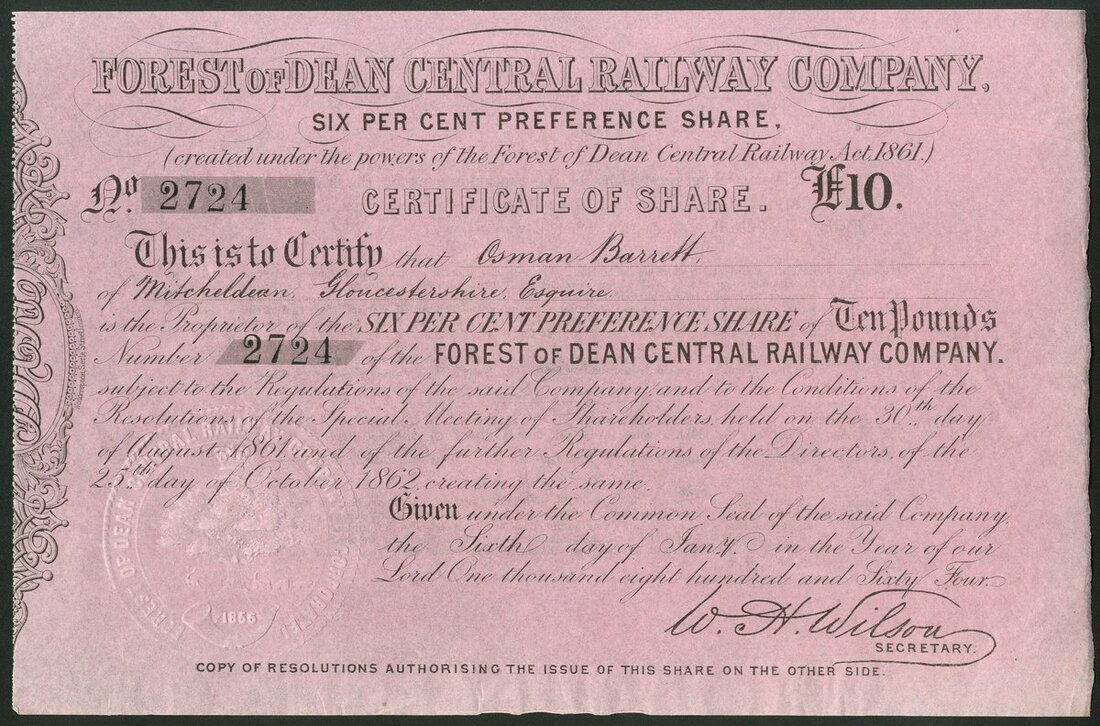 FOREST OF DEAN CENTRAL RAILWAY COMPANY,
SIX PER CENT PREFERENCE SHARE,
(created under the powers of the Forest of Dean Central Railway Act 1861.)
No. 2724 CERTIFICATE OF SHARE. £10.
This is to Certify that Osman Barrett,
of Mitcheldean, Gloucestershire, Esquire
is the Proprietor of the SIX PER CENT PREFERENCE SHARE of Ten Pounds
Number 2724 of the FOREST OF DEAN CENTRAL RAILWAY COMPANY.
subject to the Regulations of the said Company, and to the Conditions of the
Resolutions of the Special Meeting of Shareholders, held on the 30th day
of August 1861, and of the further Regulations of the Directors, of the
25th day of October 1862, creating the same.
Given under the Common Seal of the said Company,
the Sixth day of Jany. in the Year of our
Lord One thousand eight hundred and Sixty Four
W. H. Wilson
SECRETARY.
FOREST OF DEAN CENTRAL RAILWAY COMPANY
1856
COPY OF RESOLUTIONS AUTHORISING THE ISSUE OF THIS SHARE ON THE OTHER SIDE.